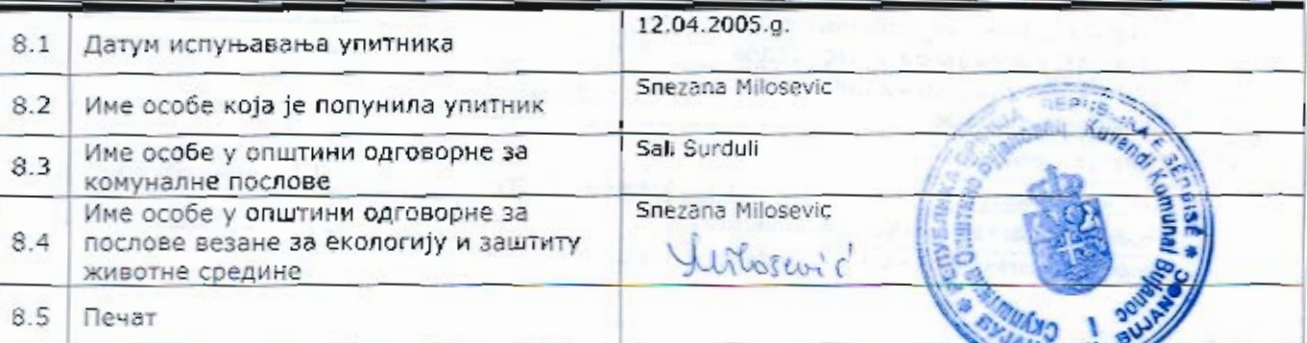 8.1 Датум испуњавања упитника 12.04.2005.g.
8.2 Име особе која је попунила упитник Snezana Milosevic
8.3 Име особе у општини одговорне за комуналне послове Sali Surduli
8.4 Име особе у општини одговорне за послове везане за екологију и заштиту животне средине Snezana Milosevic
Milosević
8.5 Печат
REPUBLIKA E SERBISË
Kuvendi Komunal Bujanoc
BUJANOC
I